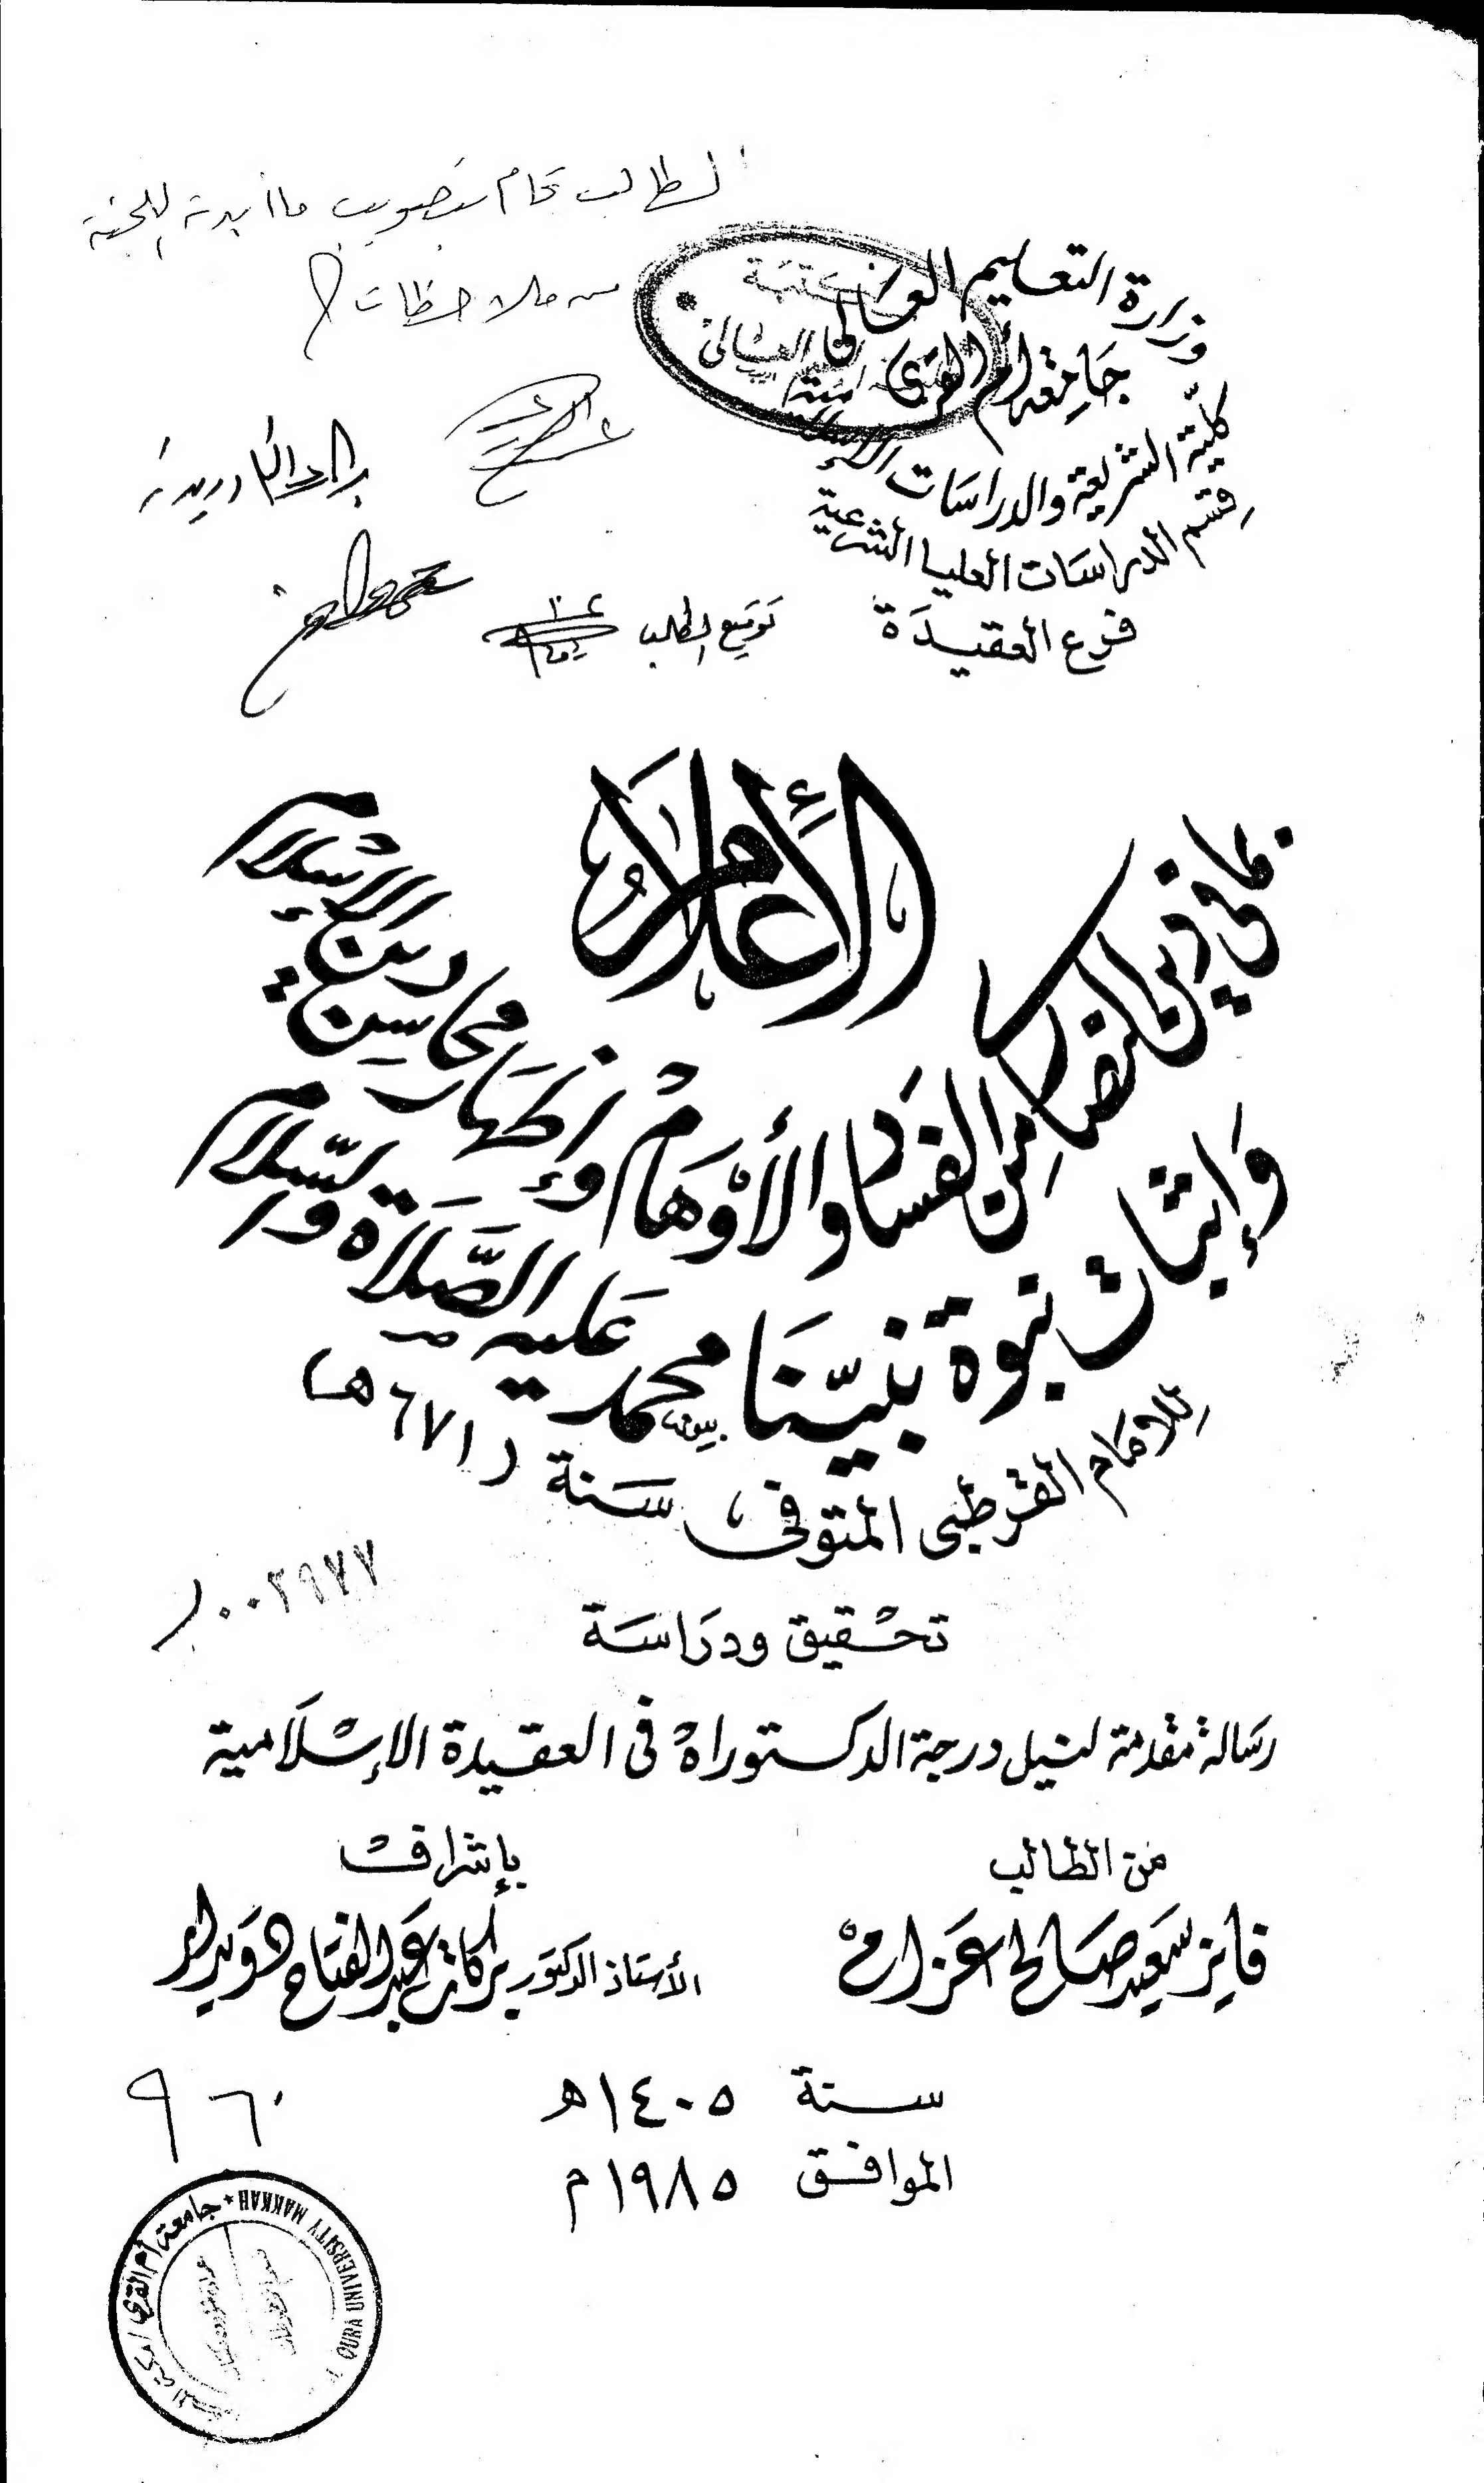 الطالب قام بتصويب ما أبدته اللجنة
من ملاحظات
وزارة التعليم العالى
جامعة أم القرى
كلية الشريعة والدراسات الإسلامية
قسم الدراسات العليا الشرعية
فرع العقيدة
توقيع الطالب
الإعلام
بما في دين النصارى من الفساد والأوهام وإظهار محاسن دين الإسلام
وإثبات نبوة نبينا محمد عليه الصلاة والسلام
للامام القرطبى المتوفى سنة (٦٧١ هـ)
٠٠٢٩٧٧
تحقيق ودراسة
رسالة مقدمة لنيل درجة الدكتوراه فى العقيدة الإسلامية
من الطالب
فايز سعيد صالح عزام
بإشراف
الأستاذ الدكتور بركات عبد الفتاح دويدار
سنة ١٤٠٥ هـ
الموافق ١٩٨٥ م
٩٦٠
جامعة أم القرى
QURA UNIVERSITY MAKKAH